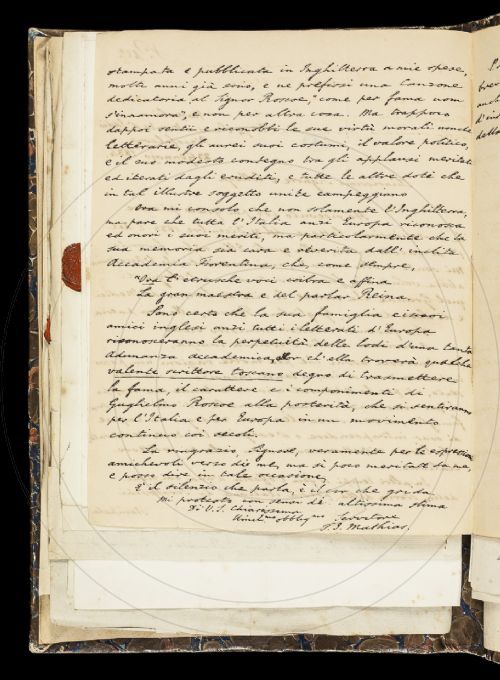 stampata e pubblicata in Inghilterra a mie spese,
molte anni già sono, e ne prefissi una Canzone
dedicatoria al Signor Roscoe, "come per fama uom
s'innamora", e non per altra cosa. Ma troppoco
dappoi sentii e riconobbi le sue virtù morali non che
letterarie, gli aurei suoi costumi, il valore politico,
e il suo modesto contegno tra gli applausi meritati
ed iterati dagli eruditi, e tutte le altre doti che
in tal illustre soggetto unite campeggiano
Ora mi consolo che non solamente l'Inghilterra,
ma pare che tutta l'Italia anzi Europa riconosca
ed onori i suoi meriti, ma particolarmente che la
sua memoria sia cara e riverita dall' inclita
Accademia Fiorentina, che, come sempre,
voci cribra e affina
La gran maestra e del parlar Reina.
Sono certo che la sua famiglia e i suoi
amici inglesi anzi tutti i letterati d'Europa
riconosceranno la perpetuità delle lodi d'una tanta
Adunanza accademica, ch'ella troverà qualche
valente scrittore toscano degno di trasmettere
la fama, il carattere e i componimenti di
Guglielmo Roscoe alla posterità, che si sentiranno
per l'Italia e per Europa in un movimento
continuo coi secoli.
La ringrazio, Signore, veramente per le espressioni
amichevoli me, ma sì poco meritate da me,
e posso dire in tale occasione,
È il silenzio che parla, è il cor che grida
Mi protesto con sensi di altissima stima
Di V. S. Chiarissima
Servitore
Mathias.